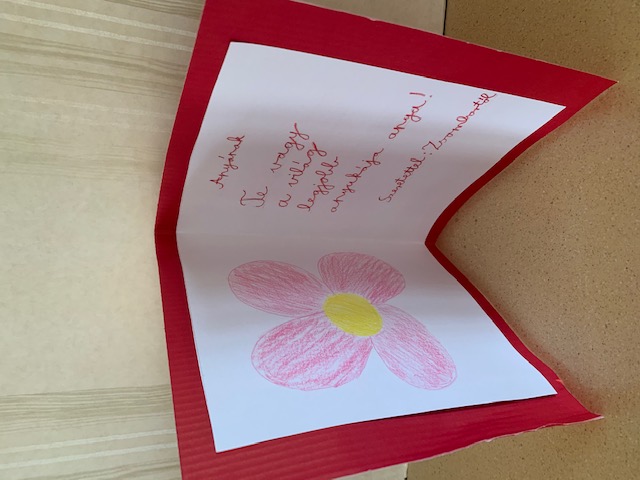 Anyának
Te vagy
a világ
legjobb
anyukája anya!
Szeretettel: Zsombortól